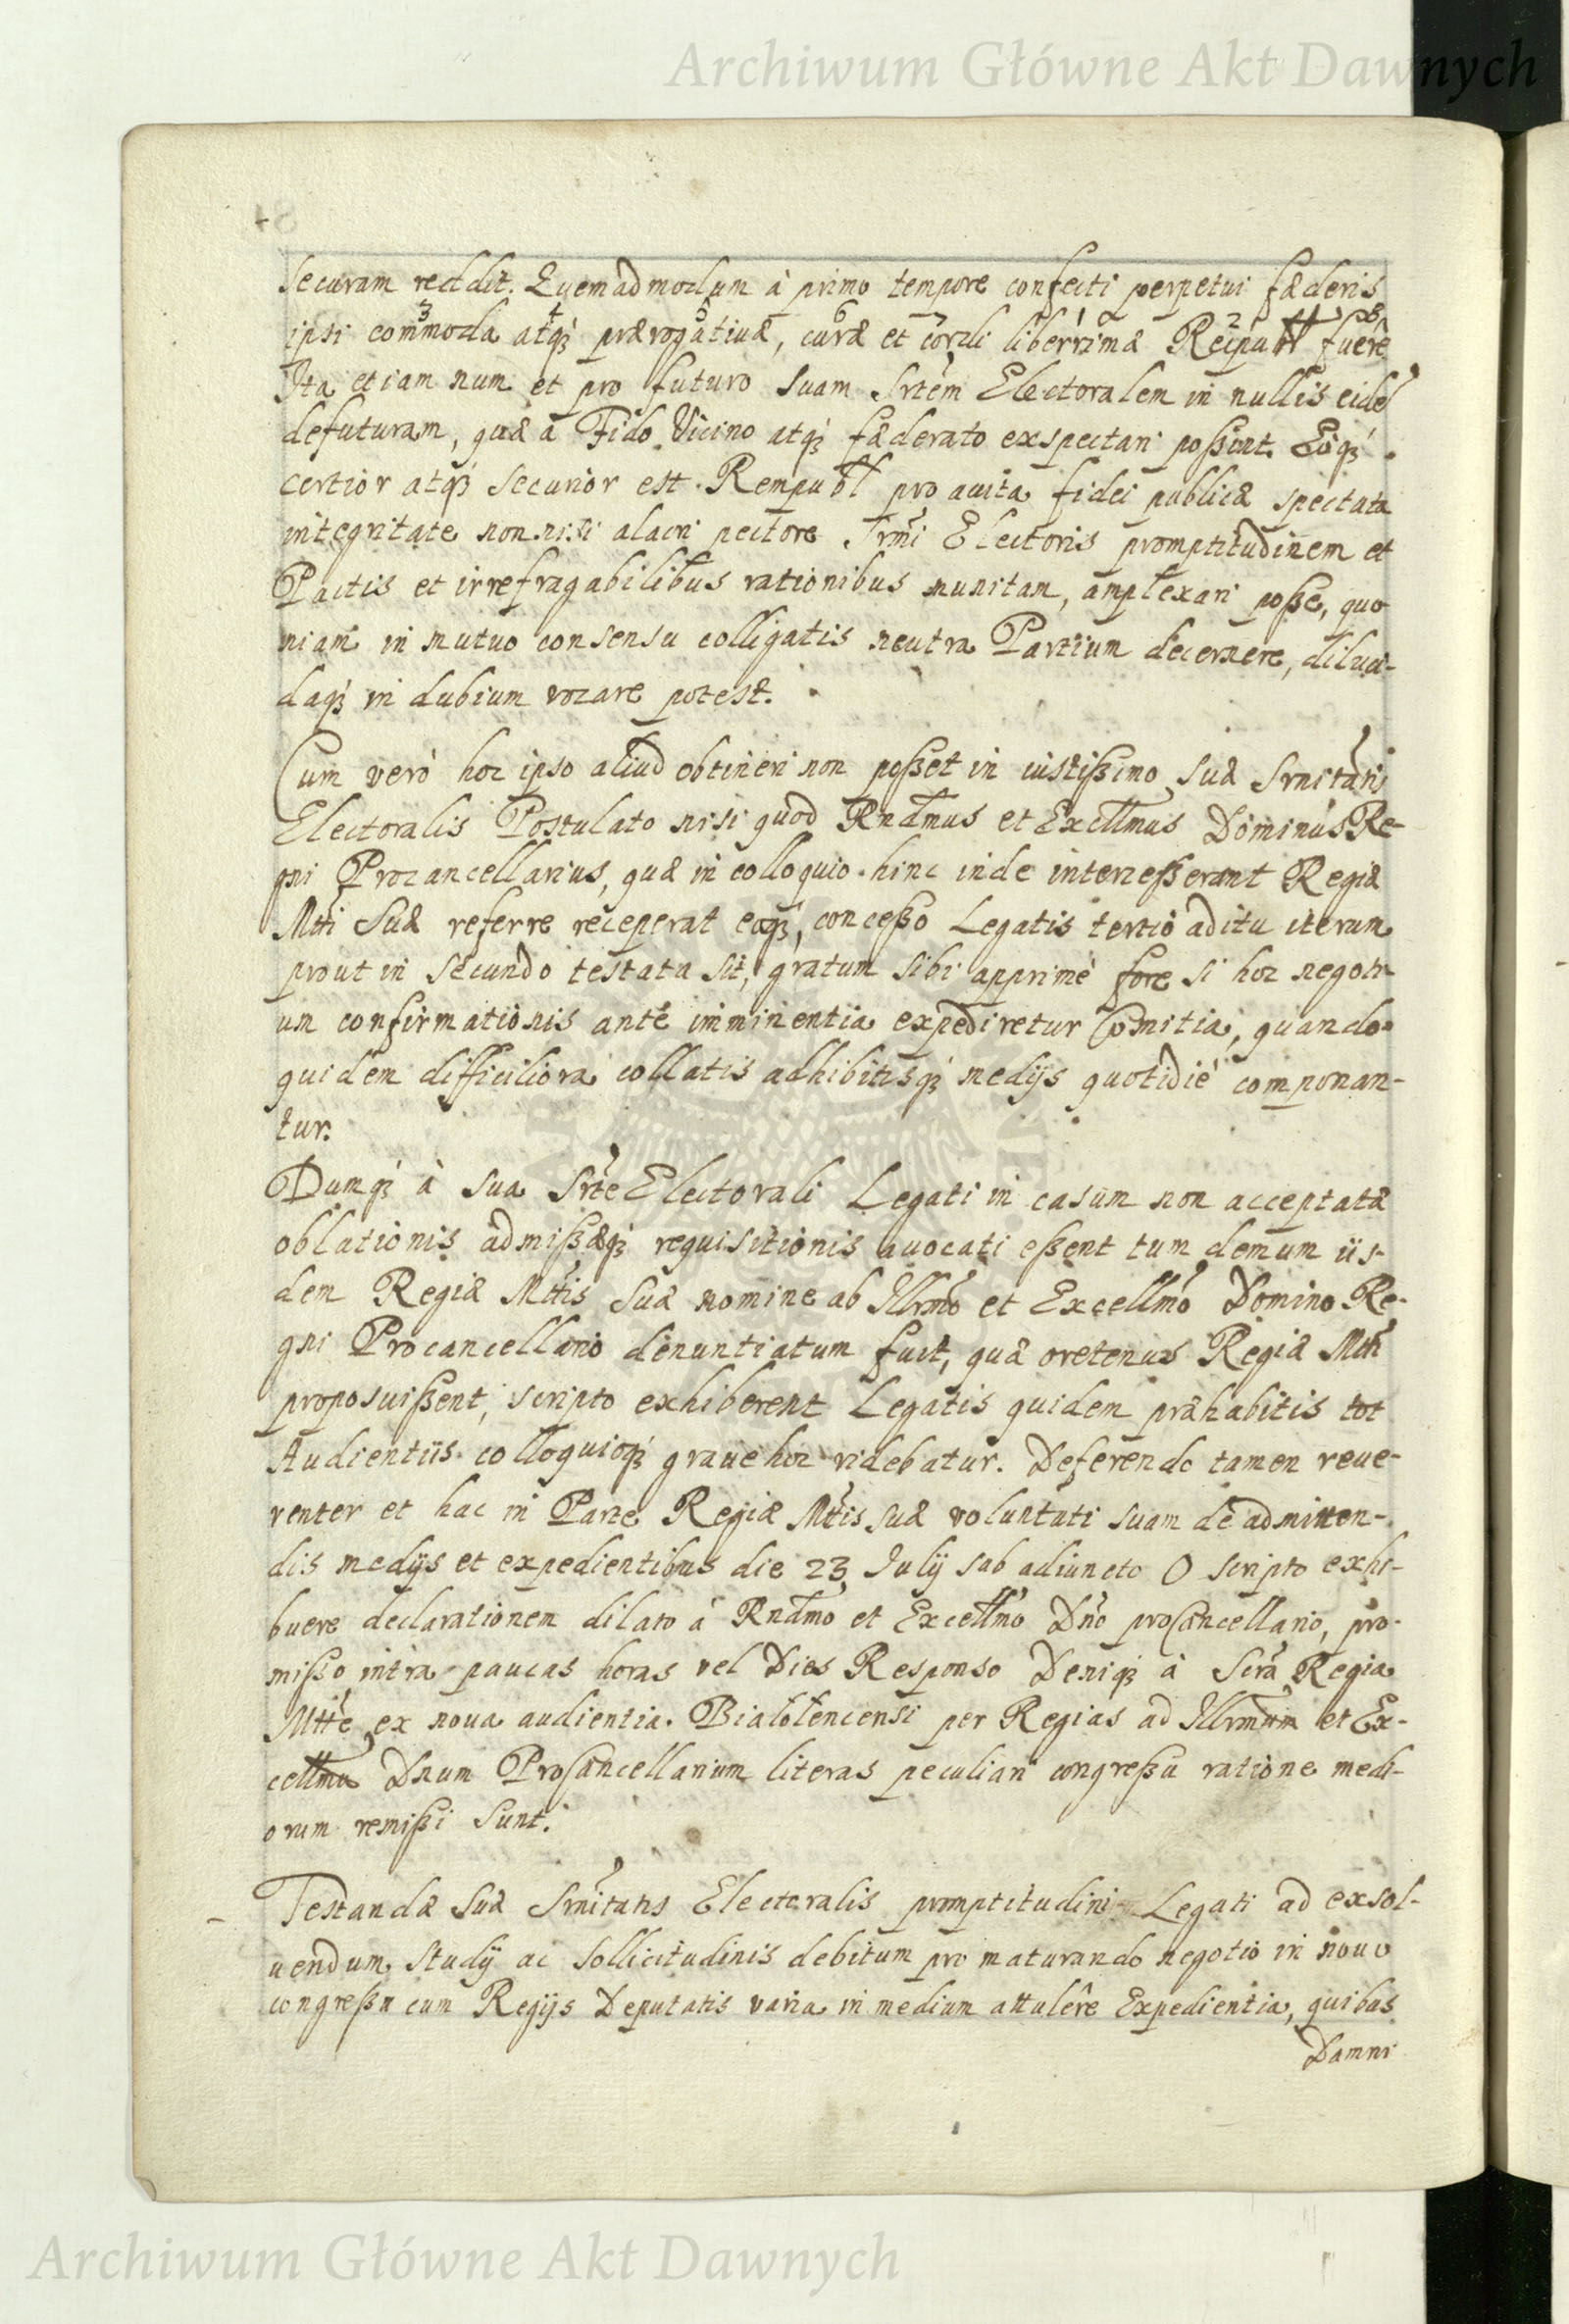 Archiwum Główne Akt Dawnych
securam reddit. Quemadmodum à primo tempore confecti perpetui fæderis
ipsi commoda atq; prærogativæ, curæ et cordi liberrimæ Reipubl fuêre
Ita etiam num et pro futuro suam Srtem Electoralem in nullis eidē
defuturam, quæ a Fido Vicino atq; fæderato exspectari poßint. Eoq;
certior atq; securior est Rempubl pro avita fidei publicæ spectata
integritate non nisi alacri pectore Srmi Electoris promptitudinem et
Pactis et irrefragabilibus rationibus munitam, amplexari poße, quo
niam in mutuo consensu colligatis neutra Partium decernere, diluci-
daq; in dubium vocare potest.
Cum verò hoc ipso aliud obtineri non poßet in iustißimo suæ Srnitatis
Electoralis Postulato nisi quod Rndmus et Excllmus Dominus Re-
gni Procancellarius, quæ in colloquio hinc inde intereßerant Regiæ
Mtti Suæ referre receperat eoq;, conceßo Legatis tertio aditu iterum
prout in secundo testata sit, gratum sibi apprimè fore si hoc negoti-
um confirmationis ante imminentia expediretur Comitia, quando-
quidem difficiliora collatis adhibitisq; medijs quotidiè componan-
tur.
Dumq; à sua Srte Electorali Legati in casum non acceptatæ
oblationis admißæq; requisitionis avocati eßent tum demum iis-
dem Regiæ Mttis Suæ nomine ab Illrmo et Excellmo Domino Re-
gni Procancellario denuntiatum fuit, quæ oretenus Regiæ Mtti
proposuißent, scripto exhiberent Legatis quidem præhabitis tot
Audientiis colloquioq; grave hoc videbatur. Deferendo tamen reve-
renter et hac in Parte Regiæ Mttis suæ voluntati suam de admitten-
dis medijs et expedientibus die 23 Julij sub adiuncto O scripto exhi-
buere declarationem dilato à Rndmo et Excellmo Dno proCancellario, pro-
mißo intra paucas horas vel Dies Responso Deniq; à Scra Regia
Mtte ex nova audientia Bialolencensi per Regias ad Illrmum et Ex-
cellmu Dnum ProCancellarium literas peculiari congreßu ratione medi-
orum remißi sunt.
Testandæ Suæ Srnitatis Electoralis promptitudini Legati ad exsol-
vendum studij ac sollicitudinis debitum pro maturando negotio in novo
congreßu cum Regijs Deputatis varia in medium attulêre Expedientia, quibus
Damni
Archiwum Główne Akt Dawnych